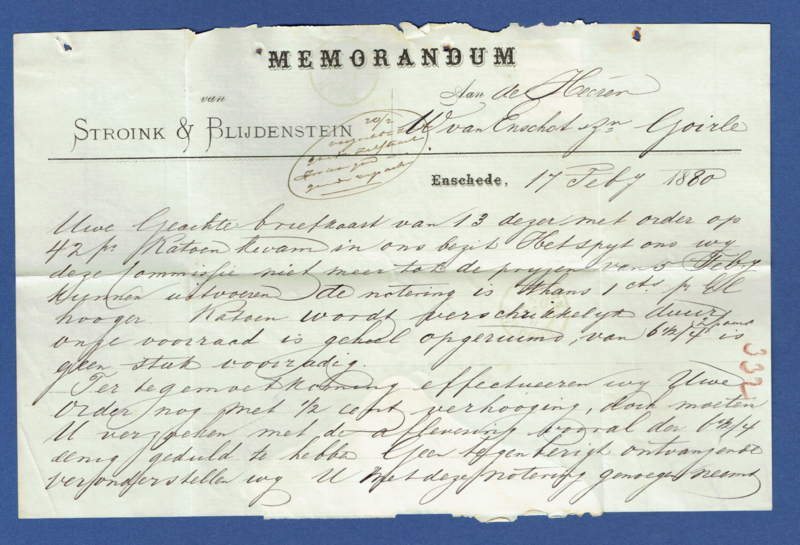 MEMORANDUM
van
Aan de Heeren
STROINK & BLIJDENSTEIN
W van Enschot & Zn Goirle
20/2
Enschede, 17 Feby 1880
Uwe Geachte briefkaart van 13 dezer met order op
42 ps Katoen kwam in ons bezit Het spyt ons wy
deze Commissie niet meer tot de pryzen van 5 Feby
kunnen uitvoeren de notering is thans 1 cts p El
hooger. Katoen wordt verschrikkelyk duur
onze voorraad is geheel opgeruimd, van 6/4 is
geen stuk voorradig.
Ter tegemoetkoming effectueeren wy Uwe
order nog met 1/2 cent verhooging, doch moeten
U verzoeken met de aflevering vooral der 6/4
eenig geduld te hebbe Geen tegenberigt ontvangende
veronderstellen wy U met deze notering genoegen neemt
332